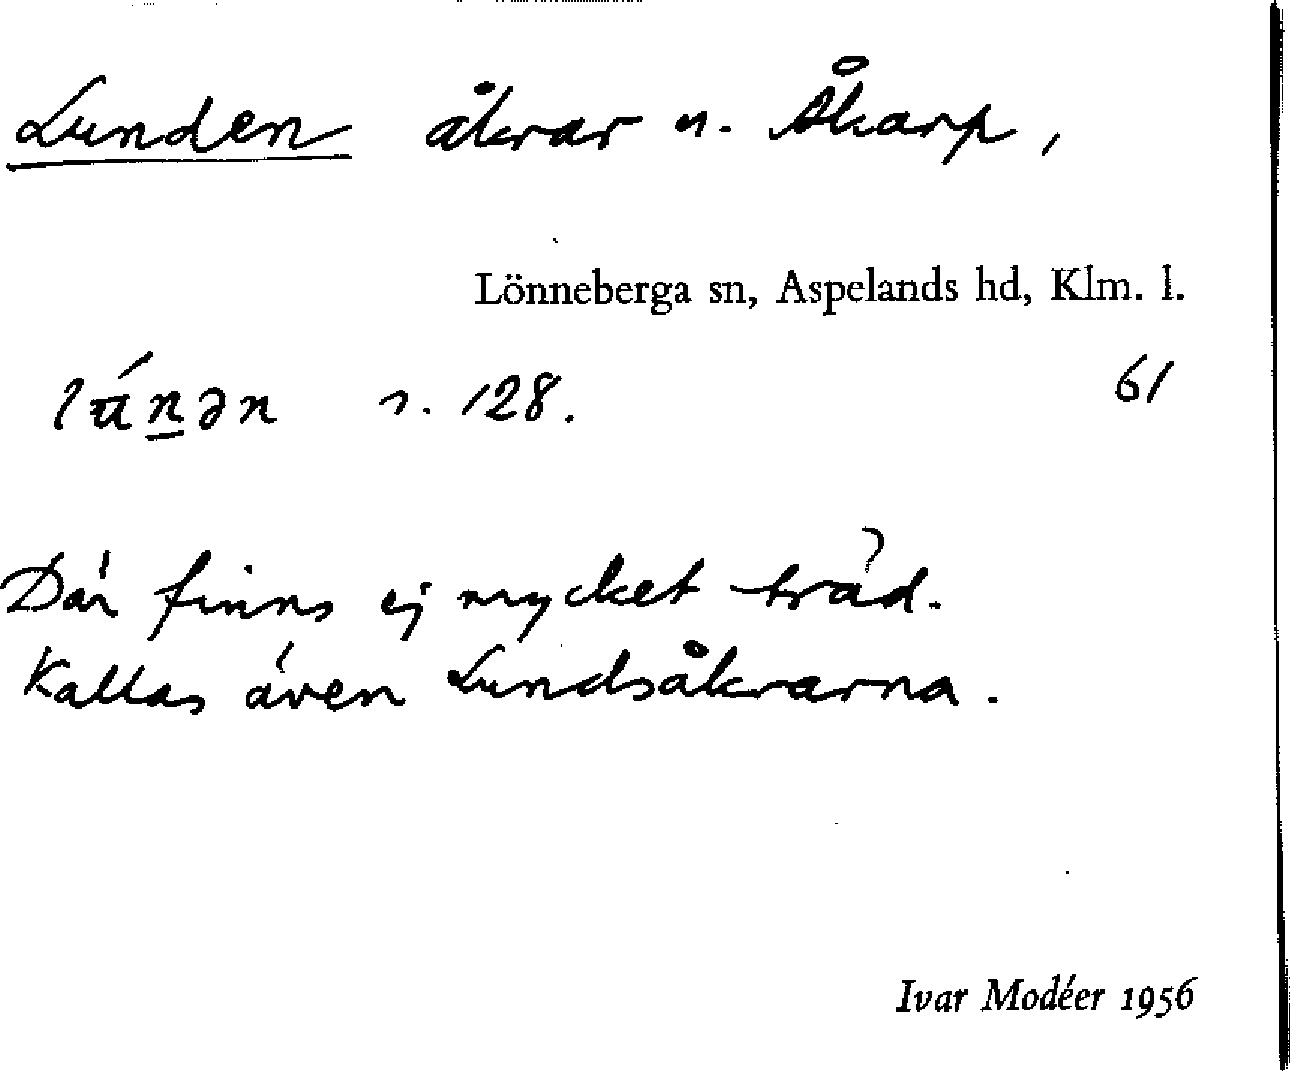 Lunden åkrar n. Åkarp,
Lönneberga sn, Aspelands hd, Klm. l.
lu̇́n̲ən s. 128. 61
Där finns ej mycket träd.
Kallas även Lundsåkrarna.
Ivar Modéer 1956